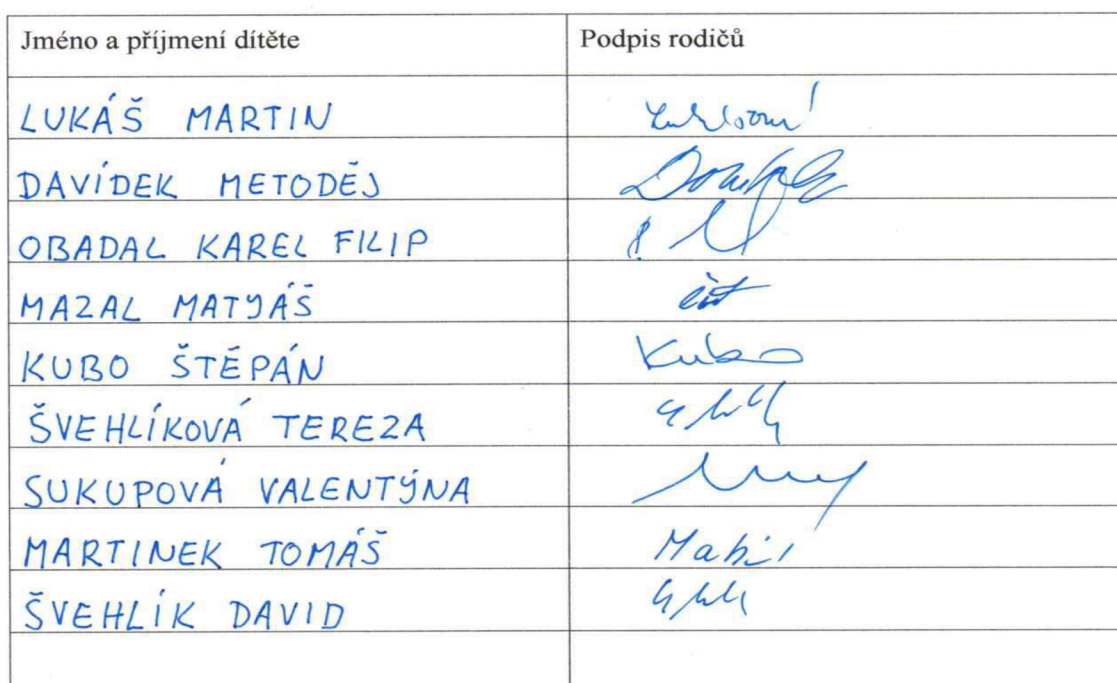 Jméno a příjmení dítěte Podpis rodičů
LUKÁŠ MARTIN
DAVÍDEK METODĚJ
OBADAL KAREL FILIP
MAZAL MATYÁŠ
KUBO ŠTĚPÁN Kubo
ŠVEHLÍKOVÁ TEREZA
SUKUPOVÁ VALENTÝNA
MARTINEK TOMÁŠ
ŠVEHLÍK DAVID